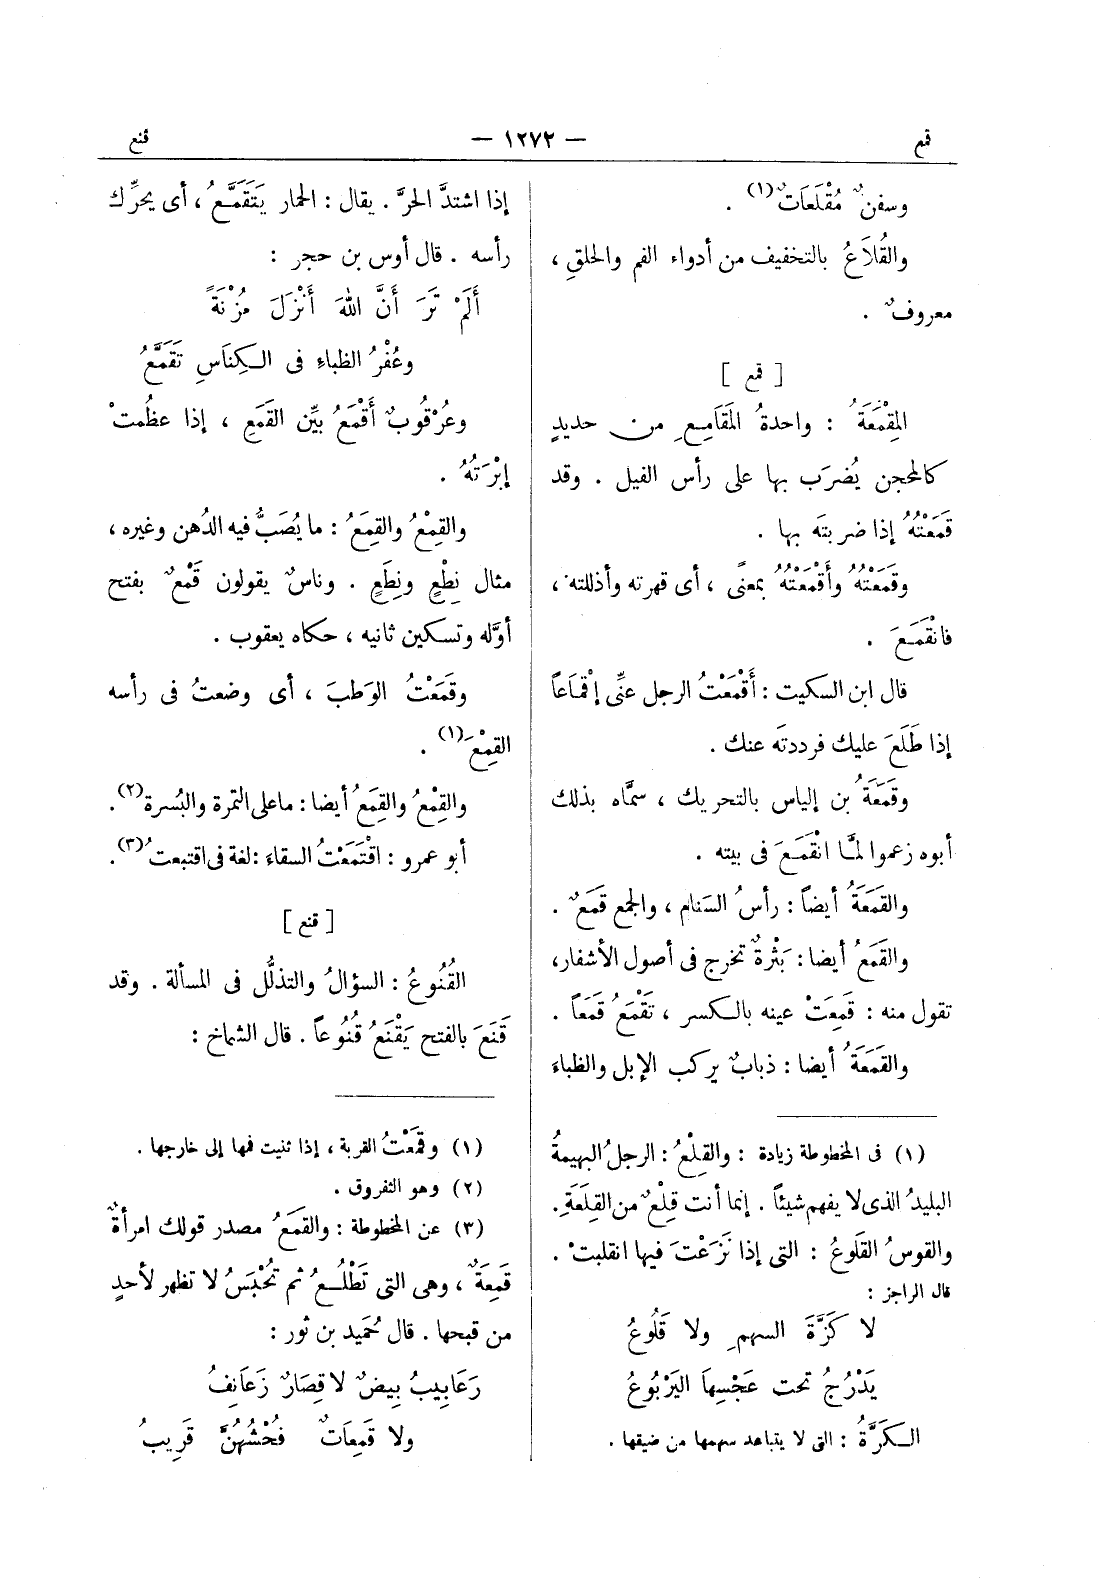 قمع
— ١٢٧٢ —
قنع
وسفنٌ مُقْلَعَاتٌ (١) .
والقُلَاعُ بالتخفيف من أدواء الفم والحلقِ ،
معروفٌ .
[ قمع ]
المِقْمَعَةُ : واحدةُ المَقَامِعِ من حديدٍ
كالمحجن يُضرَب بها على رأس الفيل . وقد
قَمَعْتُهُ إذا ضربتَه بها .
وقَمَعْتُهُ وأَقْمَعْتُهُ بمعنًى ، أى قهرته وأذللته ،
فانْقَمَعَ .
قال ابن السكيت : أَقْمَعْتُ الرجل عنِّى إقْمَاعًا
إذا طَلَعَ عليك فرددتَه عنك .
وقَمَعَةُ بن إلياس بالتحريك ، سمَّاه بذلك
أبوه زعموا لمَّا انْقَمَعَ فى بيته .
والقَمَعَةُ أيضاً : رأسُ السَنام ، والجمع قَمَعٌ .
والقَمَعُ أيضا : بَثْرةٌ تخرج فى أصول الأشفار،
تقول منه : قَمِعَتْ عينه بالكسر ، تَقْمَعُ قَمَعاً .
والقَمَعَةُ أيضا : ذبابٌ يركب الإبل والظباءَ
(١) فى المخطوطة زيادة : والقِلْعُ : الرجل البهيمةُ
البليدُ الذى لا يفهم شيئاً . إنما أنت قِلْعٌ من القِلَعَةِ.
والقوسُ القَلوعُ : التى إذا نَزَعْتَ فيها انقلبتْ .
قال الراجز :
لا كَزَّةَ السهمِ ولا قَلُوعُ
يَدْرُجُ تحت عَجْسِهاَ اليَرْبُوعُ
الكَزَّةُ : التى لا يتباعد سهمها من ضيقها .
إذا اشتدَّ الحرَّ . يقال : الحمار يَتَقَمَّعُ ، أى يحرِّك
رأسه . قال أوس بن حجر :
أَلَمْ تَرَ أَنَّ اللهَ أَنْزَلَ مُزْنَةً
وعُفْرُ الظباءِ فى الكِنَاسِ تَقَمَّعُ
وعُرْقُوبٌ أَقْمَعُ بيِّن القَمَعِ ، إذا عظُمتْ
إبْرَتُهُ .
والقِمْعُ والقِمَعُ : ما يُصَبُّ فيه الدُهن وغيره ،
مثال نِطْعٍ ونِطَعٍ . وناسٌ يقولون قَمْعٌ بفتح
أوَّله وتسكين ثانيه ، حكاه يعقوب .
وقَمَعْتُ الوَطبَ ، أى وضعتُ فى رأسه
القِمْعَ (١) .
والقِمْعُ والقِمَعُ أيضا : ما على التمرة والبُسرة (٢).
أبو عمرو : اقْتَمَعْتُ السقاءَ : لغة فى اقتبعتُ (٣).
[ قنع ]
القُنُوعُ : السؤالُ والتذلُّل فى المسألة . وقد
قَنَعَ بالفتح يَقْنَعُ قُنُوعاً . قال الشماخ :
(١) وقَمَعْتُ القربة ، إذا ثنيت فمها إلى خارجها .
(٢) وهو الثفروق .
(٣) عن المخطوطة : والقَمَعُ مصدر قولك امرأةٌ
قَمِعَةٌ ، وهى التى تَطْلُعُ ثم تُحْبَسُ لا تظهر لأحدٍ
من قبحها . قال حُميد بن ثور :
رَعَابِيبُ بِيضٌ لا قِصَارٌ زَعَانِفُ
ولا قَمِعَاتٌ فُحْشُهُنَّ قَرِيبُ